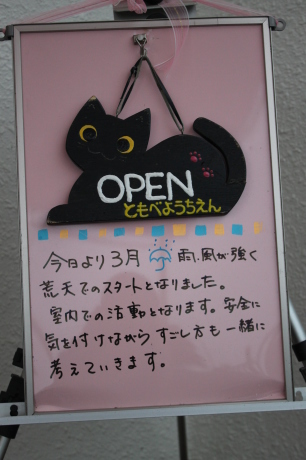 OPEN
ともべようちえん
今日より3月 雨、風が強く
荒天でのスタートとなりました。
室内での活動となります。安全に
気を付けながら すごし方も一緒に
考えていきます。